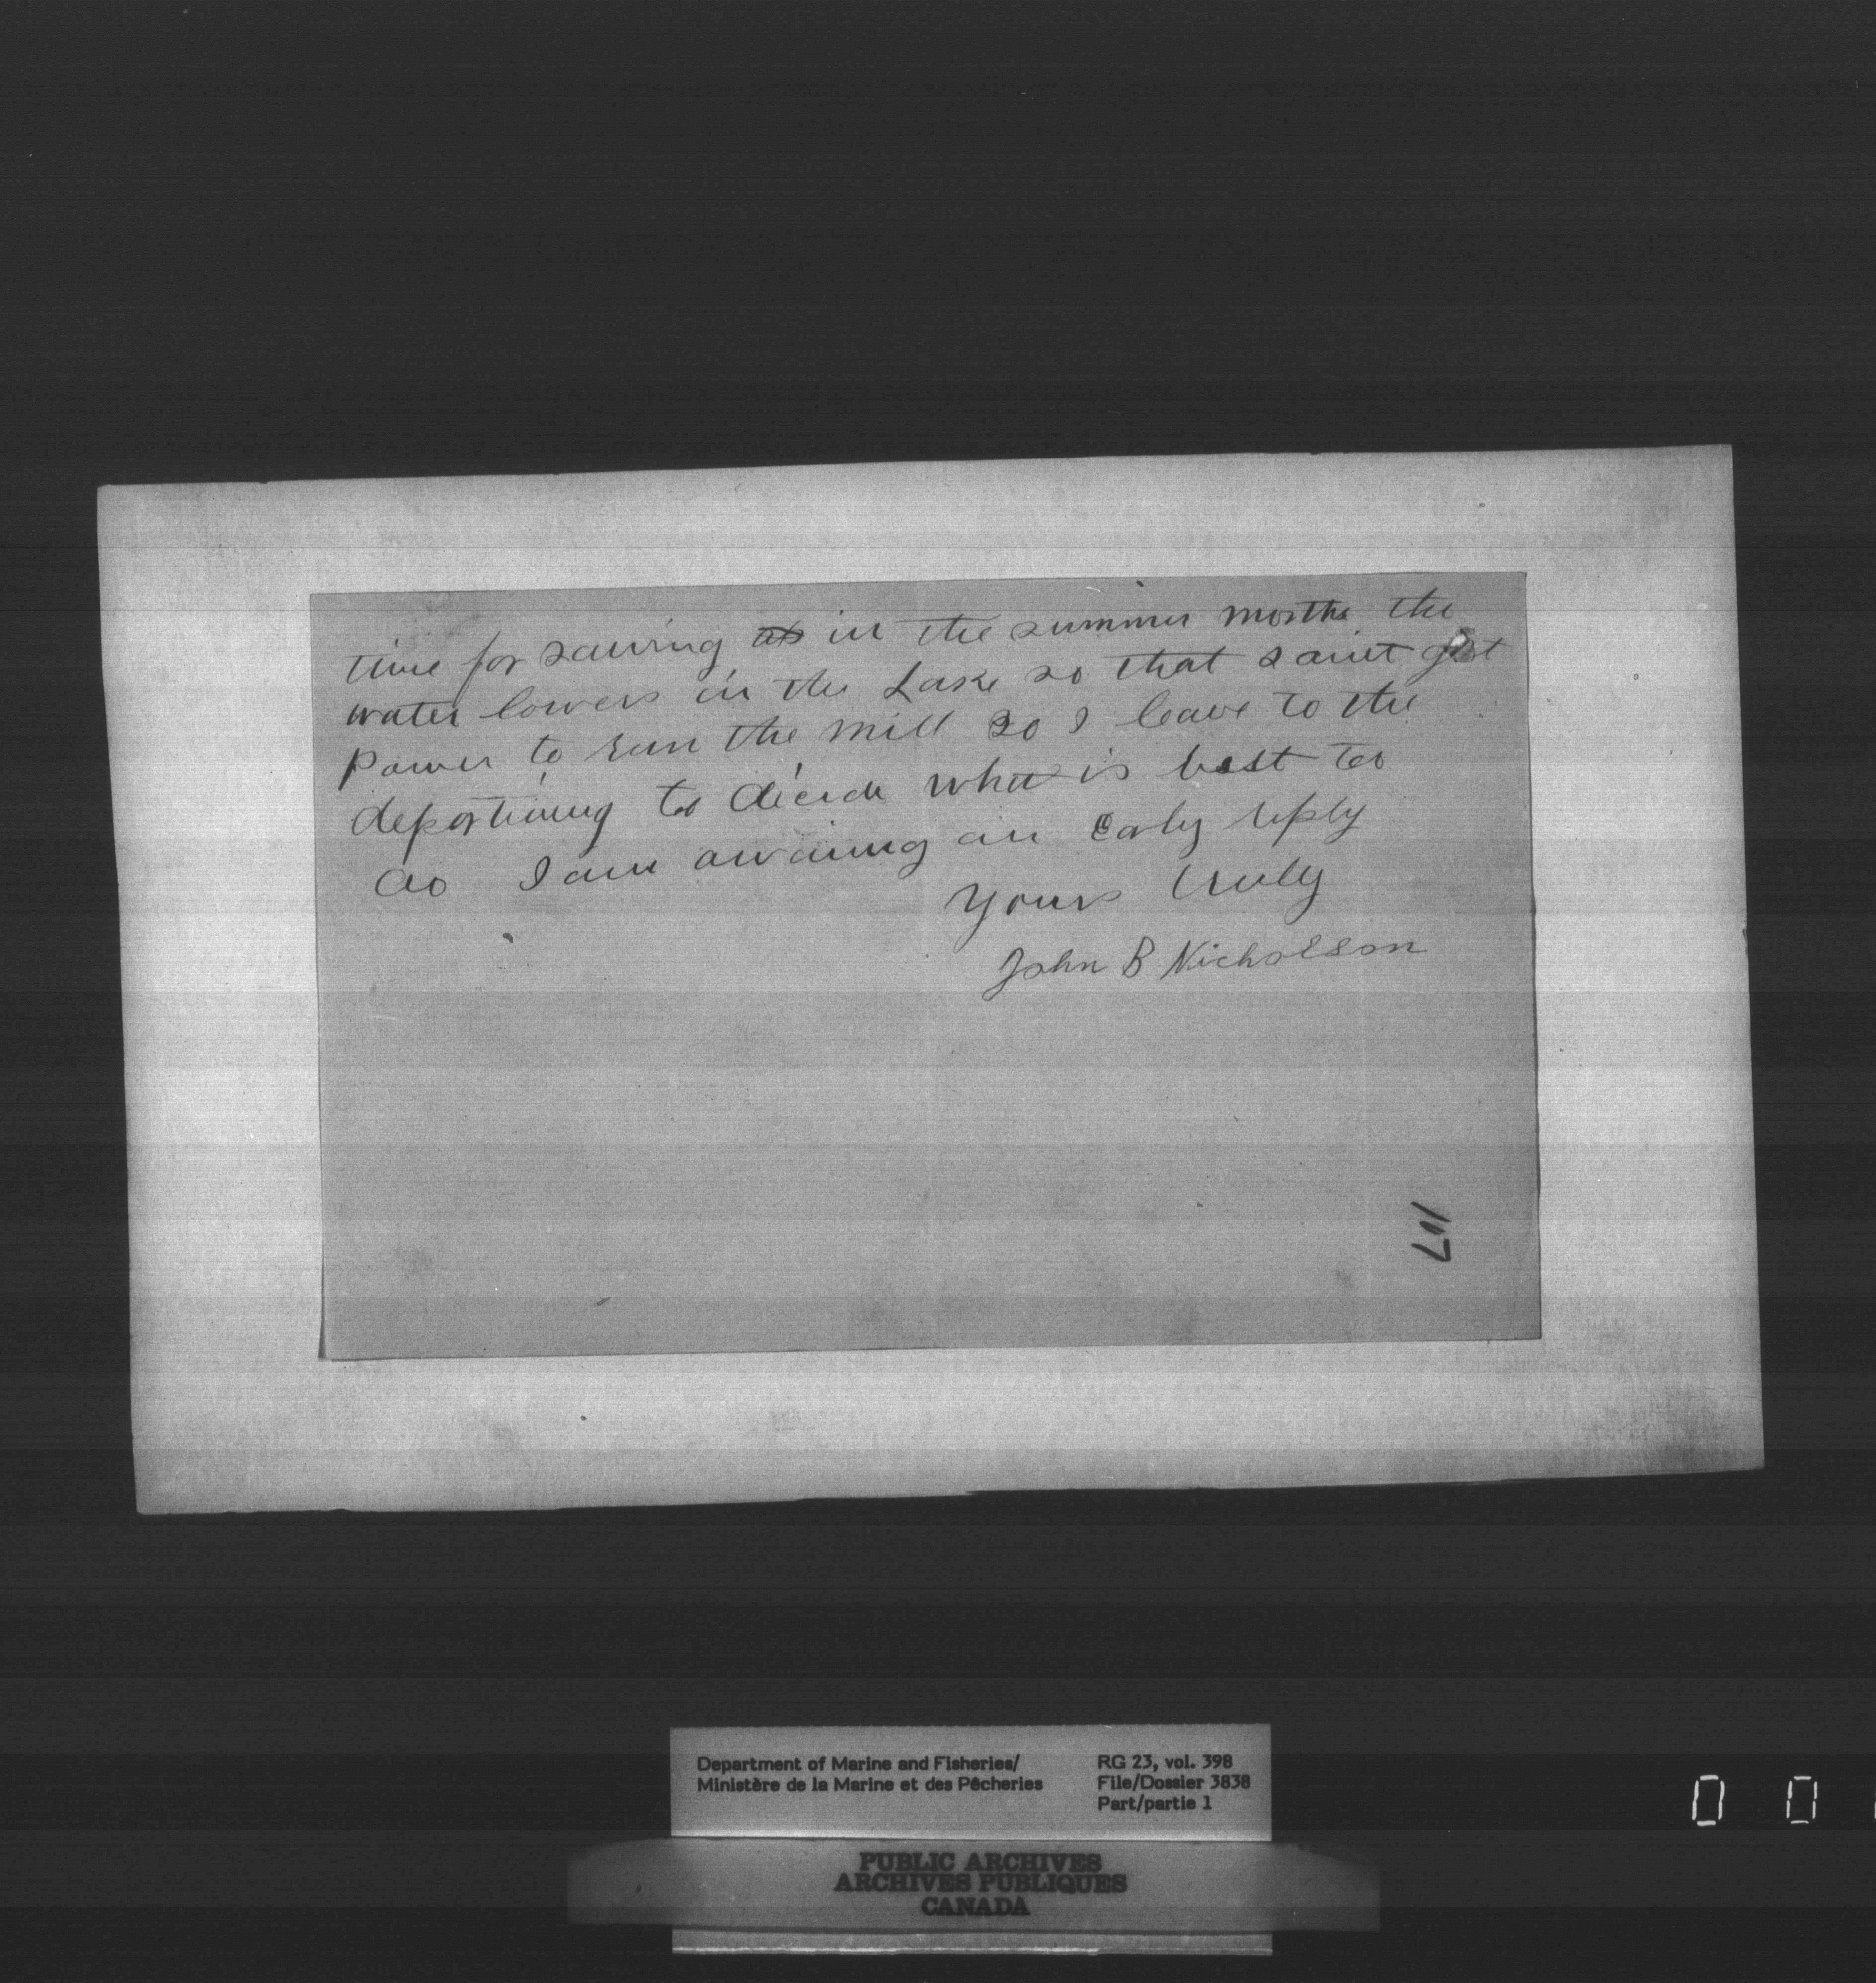 time for sawing as in the summer months the
water lowers in the Lake so that I aint got
power to run the mill So I leave to the
departining to decide what is best to
do I am awaiing an Early reply
Yours truly
John B Nicholson
107
Department of Marine and Fisheries/
Ministère de la Marine et des Pêcheries
RG 23, vol. 398
File/Dossier 3838
Part/partie 1
PUBLIC ARCHIVES
ARCHIVES PUBLIQUES
CANADA
0 0